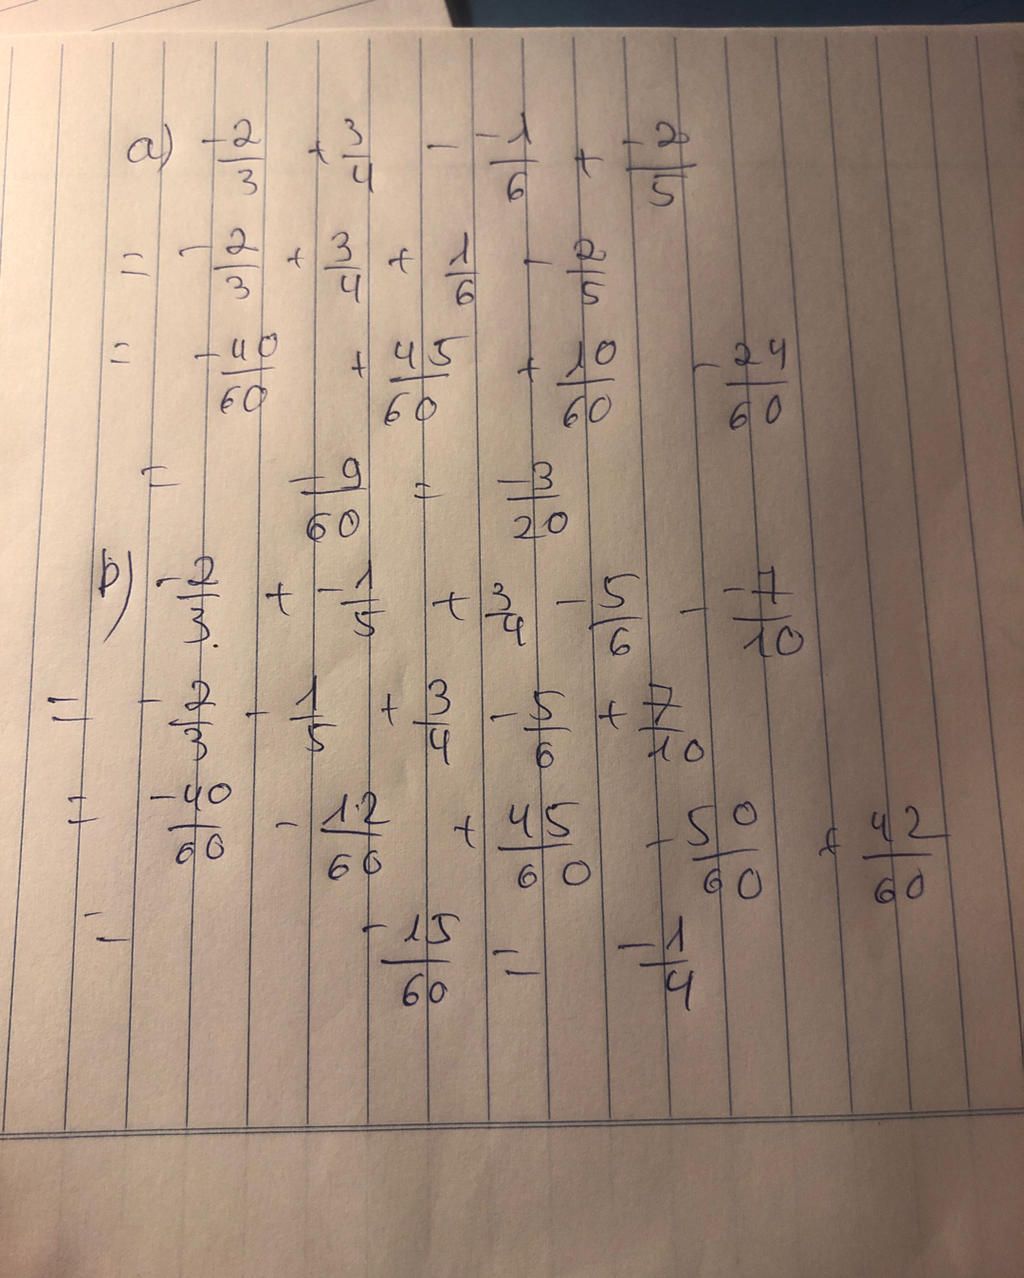 a) -2/3 + 3/4 - -1/6 + -2/5
= -2/3 + 3/4 + 1/6 - 2/5
= -40/60 + 45/60 + 10/60 - 24/60
= -9/60 = -3/20
b) -2/3 + -1/5 + 3/4 - 5/6 - -7/10
= -2/3 - 1/5 + 3/4 - 5/6 + 7/10
= -40/60 - 12/60 + 45/60 - 50/60 + 42/60
= -15/60 = -1/4